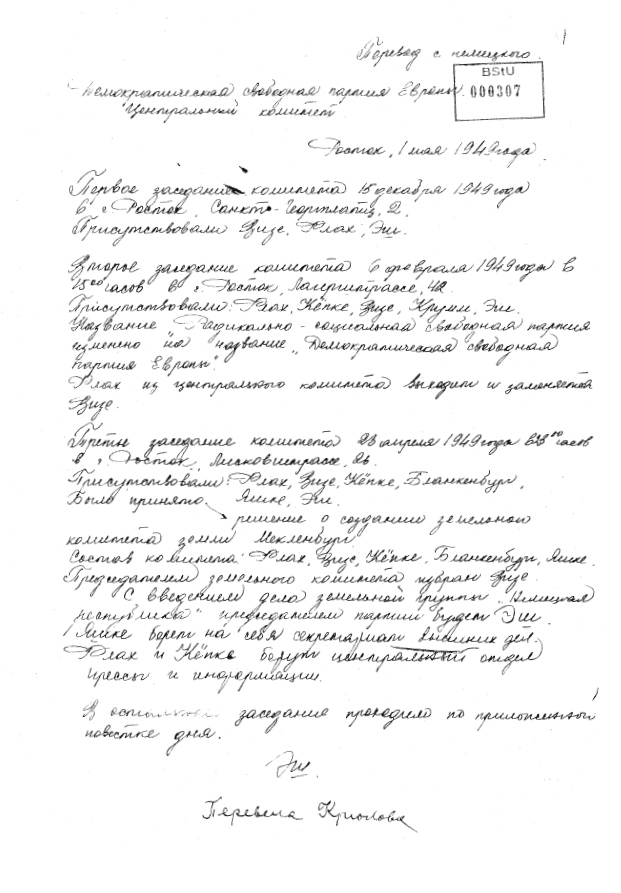 1
Перевод с немецкого.
BStU
000307
Демократическая свободная партия Европы.
Центральный комитет
Росток, 1 мая 1949 года.
Первое заседание комитета 15 декабря 1949 года
в г. Росток, Санкт-Георгплатц, 2.
Присутствовали Визе, Флах, Эш.
Второе заседание комитета 6 февраля 1949 года в
15⁰⁰ часов в г. Росток, 42.
Присутствовали: Флах, Кёпке, Визе, Крумм, Эш.
Название "Радикально-социальная свободная партия
изменено на название "Демократическая свободная
партия Европы".
Флах из центрального комитета выходит и заменяется
Визе.
Третье заседание комитета 23 апреля 1949 года в часов
в г. Росток, 26.
Присутствовали: Флах, Визе, Кёпке, Бланкенбург,
Было принято Яшке, Эш.
решение о создании земельного
комитета земли Мекленбург.
Состав комитета: Флах, Визе, Кёпке, Бланкенбург, Яшке.
Председателем земельного комитета избран Визе.
С введением дела земельной группы "Немецкая
республика" председателем партии будет Эш.
Яшке берет на себя секретариат внешних дел.
Флах и Кёпке берут центральный отдел
прессы и информации.
В остальном заседание проходило по приложенной
повестке дня.
Эш.
Перевела Крюлова